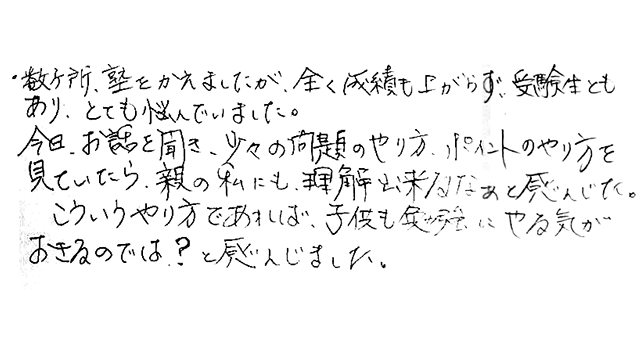 ・数ヶ所、塾をかえましたが、全く成績も上がらず、受験生とも
あり、とても悩んでいました。
今日、お話を聞き、少々の問題のやり方、ポイントのやり方を
見ていたら、親の私にも、理解出来るなぁと感んじた。
こういうやり方であれば、子供も勉強にやる気が
おきるのでは？と感んじました。